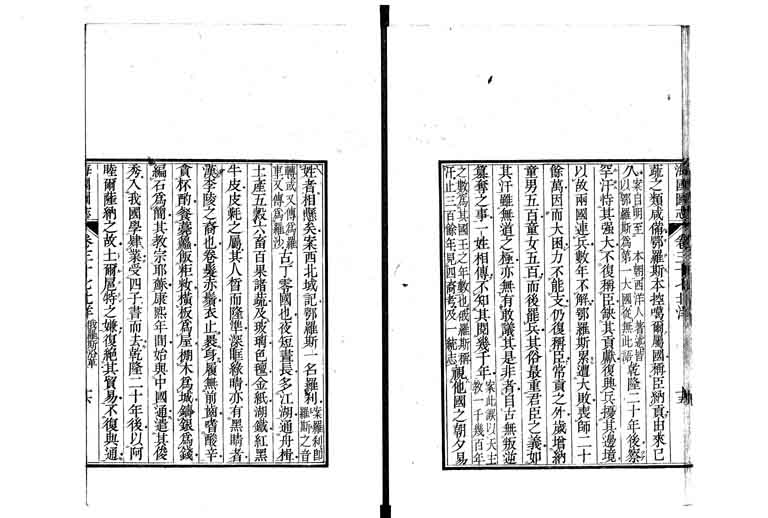 海國圖志 卷三十七 北洋 十五
蔬之類咸備鄂羅斯本控噶爾屬國稱臣納貢由來已
久案自明至 本朝西洋人著述皆以鄂羅斯為第一大國從無此語乾隆二十年後察
罕汗恃其强大不復稱臣缺其貢獻復興兵擾其邊境
以故兩國連兵數年不解鄂羅斯累遭大敗喪師二十
餘萬因而大困力不能支仍復稱臣常貢之外歲增納
童男五百童女五百而後罷兵其俗最重君臣之義如
其汗雖無道之極亦無有敢議其是非者自古無叛逆
簒奪之事一姓相傳不知其閱幾千年案此誤以天主教一千幾百年
之數為其國王之年數也俄羅斯稱汗止三百餘年見四裔考及一統志視他國之朝夕易
姓者相懸矣案西北域記鄂羅斯一名羅利案羅利即羅斯之音
轉或又傳為羅車又傳為羅沙古丁零國也夜短晝長多江湖通舟楫
土產五穀六畜百果諸蔬及玻璃色䅵金紙湖鐵紅黑
牛皮皮氈之屬其人晳而隆準深眶綠睛亦有黑睛者
漢李陵之裔也卷髮亦續衣止裹身履無前齒嗜酸辛
貪杯酌餐麰麤飯柜敉橫板為屋棚木為城鑄銀為錢
編石為簡其教宗耶穌康熙年間始與中國通遣其俊
秀入我國學肄業受四子書而去乾隆二十年後以阿
睦爾薩納之故土爾扈特之嫌復絕其貿易不復與通
海國圖志 卷三十七 北洋 俄羅斯沿革 十六